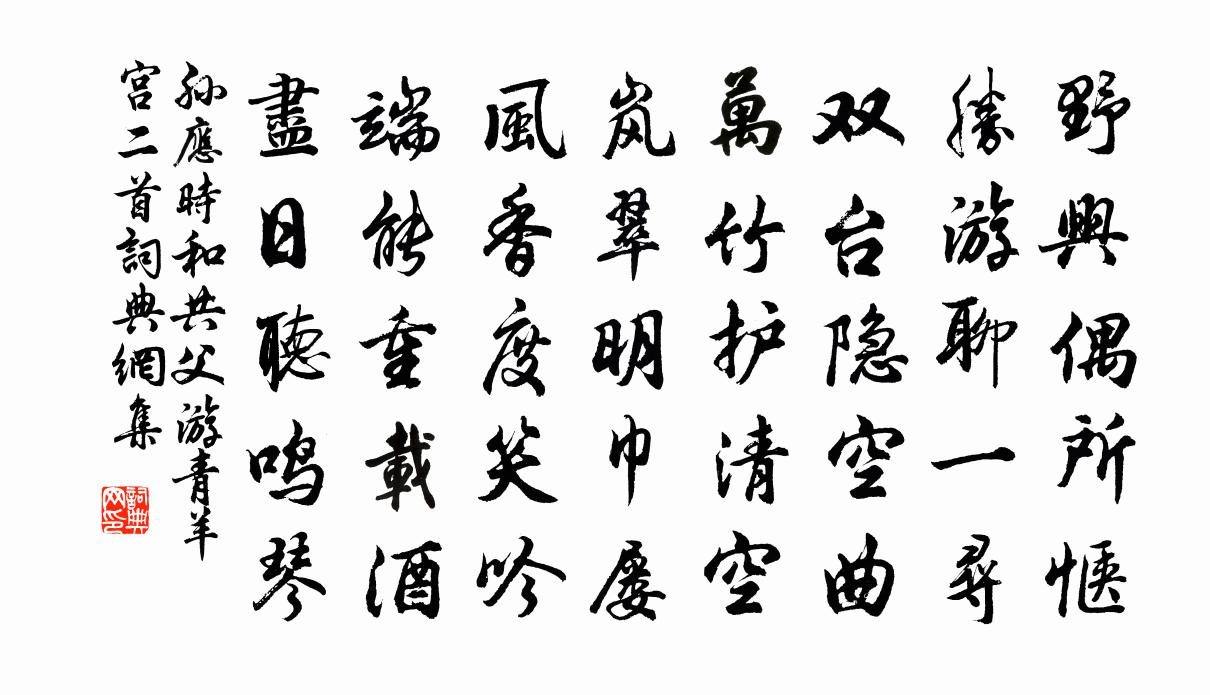 野興偶所惬
勝游聊一尋
双台隐空曲
萬竹护清空
岚翠明巾屡
風香度笑吟
端能重載酒
盡日聽鸣琴
孙應時和共父游青羊
宫二首詞典網集
詞典
网印